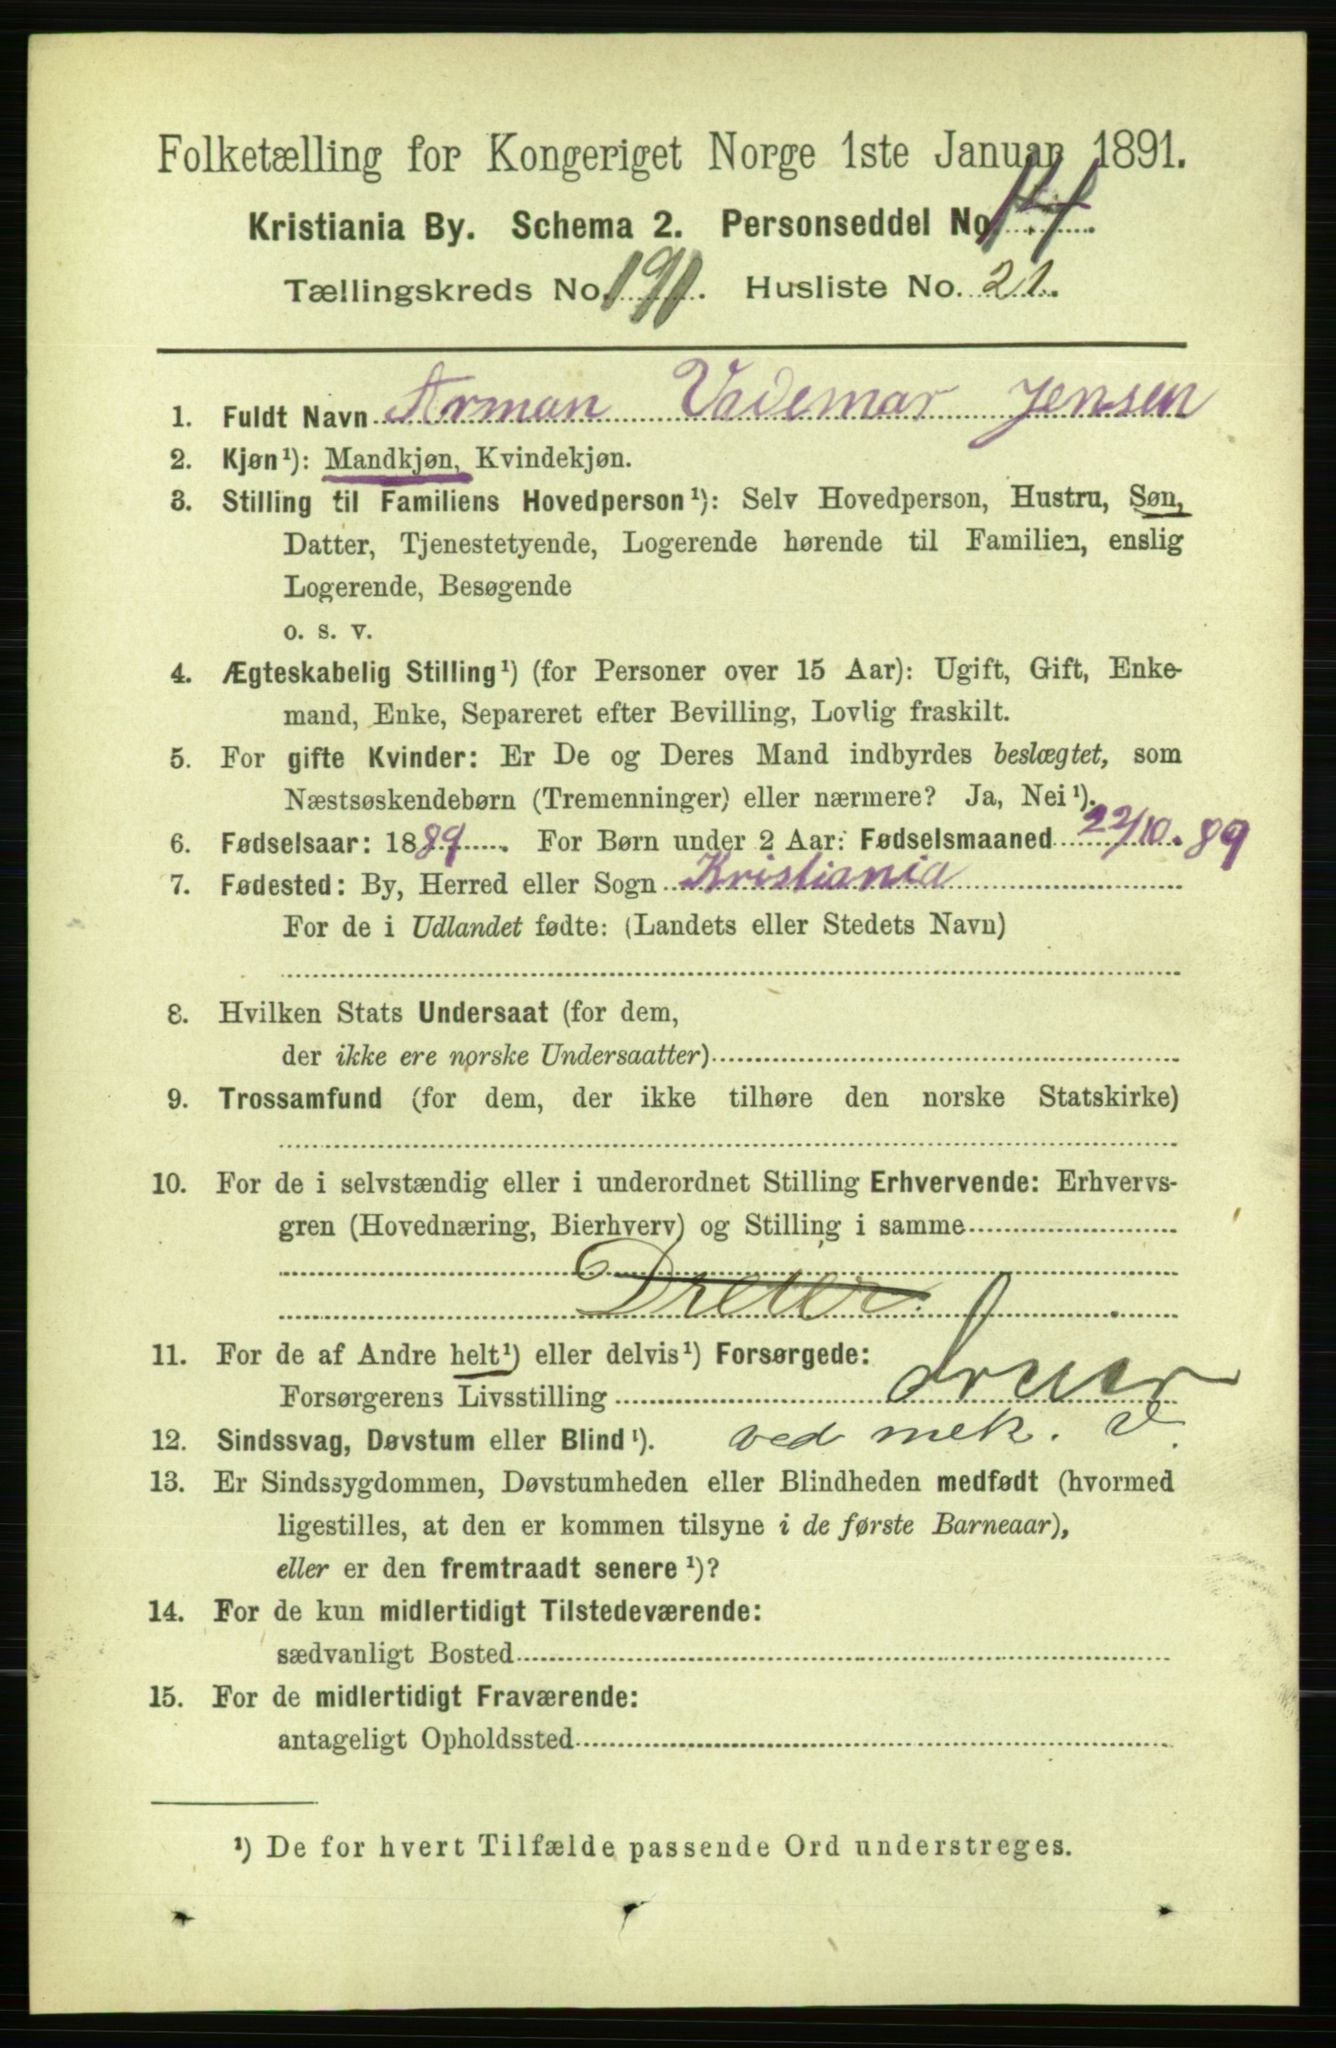 Folketælling for Kongeriget Norge 1ste Januar 1891.
Kristiania By. Schema 2. Personseddel No.
Tællingskreds No. 191. Husliste No. 21.
1. Fuldt Navn Arman Vademar Jensen
2. Kjøn¹): Mandkjøn, Kvindekjøn.
3. Stilling til Familiens Hovedperson¹): Selv Hovedperson, Hustru, Søn,
Datter, Tjenestetyende, Logerende hørende til Familien, enslig
Logerende, Besøgende
o. s. v.
4. Ægteskabelig Stilling¹) (for Personer over 15 Aar): Ugift, Gift, Enke-
mand, Enke, Separeret efter Bevilling, Lovlig fraskilt.
5. For gifte Kvinder: Er De og Deres Mand indbyrdes beslægtet, som
Næstsøskendebørn (Tremenninger) eller nærmere? Ja, Nei¹).
6. Fødselsaar: 1889. For Børn under 2 Aar: Fødselsmaaned 22/10.89
7. Fødested: By, Herred eller Sogn Kristiania
For de i Udlandet fødte: (Landets eller Stedets Navn)
8. Hvilken Stats Undersaat (for dem,
der ikke ere norske Undersaatter)
9. Trossamfund (for dem, der ikke tilhøre den norske Statskirke)
10. For de i selvstændig eller i underordnet Stilling Erhvervende: Erhvervs-
gren (Hovednæring, Bierhverv) og Stilling i samme
Dreier
11. For de af Andre helt¹) eller delvis¹) Forsørgede:
Forsørgerens Livsstilling Dreier
12. Sindssvag, Døvstum eller Blind¹). ved mek. V.
13. Er Sindssygdommen, Døvstumheden eller Blindheden medfødt (hvormed
ligestilles, at den er kommen tilsyne i de første Barneaar),
eller er den fremtraadt senere¹)?
14. For de kun midlertidigt Tilstedeværende:
sædvanligt Bosted
15. For de midlertidigt Fraværende:
antageligt Opholdssted
¹) De for hvert Tilfælde passende Ord understreges.